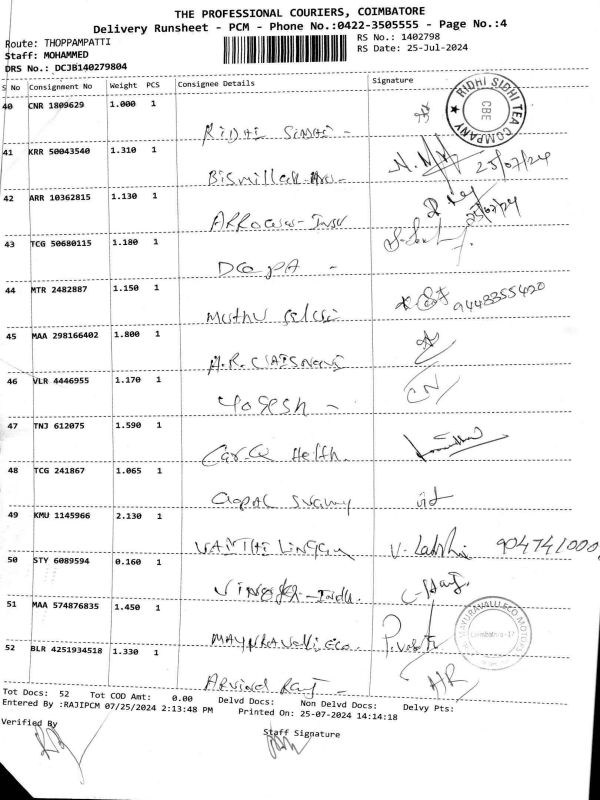 THE PROFESSIONAL COURIERS, COIMBATORE
Delivery Runsheet - PCM - Phone No.:0422-3505555 - Page No.:4
Route: THOPPAMPATTI
RS No.: 1402798
Staff: MOHAMMED
RS Date: 25-Jul-2024
DRS No.: DCJB140279804
S No Consignment No Weight PCS Consignee Details Signature
40 CNR 1809629 1.000 1
RIDHI SIDHI -
RIDHI SIDHI TEA COMPANY CBE
41 KRR 50043540 1.310 1
25/07/24
42 ARR 10362815 1.130 1
25/07/24
43 TCG 50680115 1.180 1
Deepa -
44 MTR 2482887 1.150 1
9443355420
Muthu
45 MAA 298166402 1.800 1
46 VLR 4446955 1.170 1
CN
Yogesh -
47 TNJ 612075 1.590 1
Care Health.
48 TCG 241867 1.065 1
Gopal Swamy
49 KMU 1145966 2.130 1
Vaithilingam
V. Lakshmi
50 STY 6089594 0.160 1
51 MAA 574876835 1.450 1
Coimbatore-17
52 BLR 4251934518 1.330 1
Arvind Raj -
AR
Tot Docs: 52 Tot COD Amt: 0.00 Delvd Docs: Non Delvd Docs: Delvy Pts:
Entered By :RAJIPCM 07/25/2024 2:13:48 PM Printed On: 25-07-2024 14:14:18
Verified By
Staff Signature